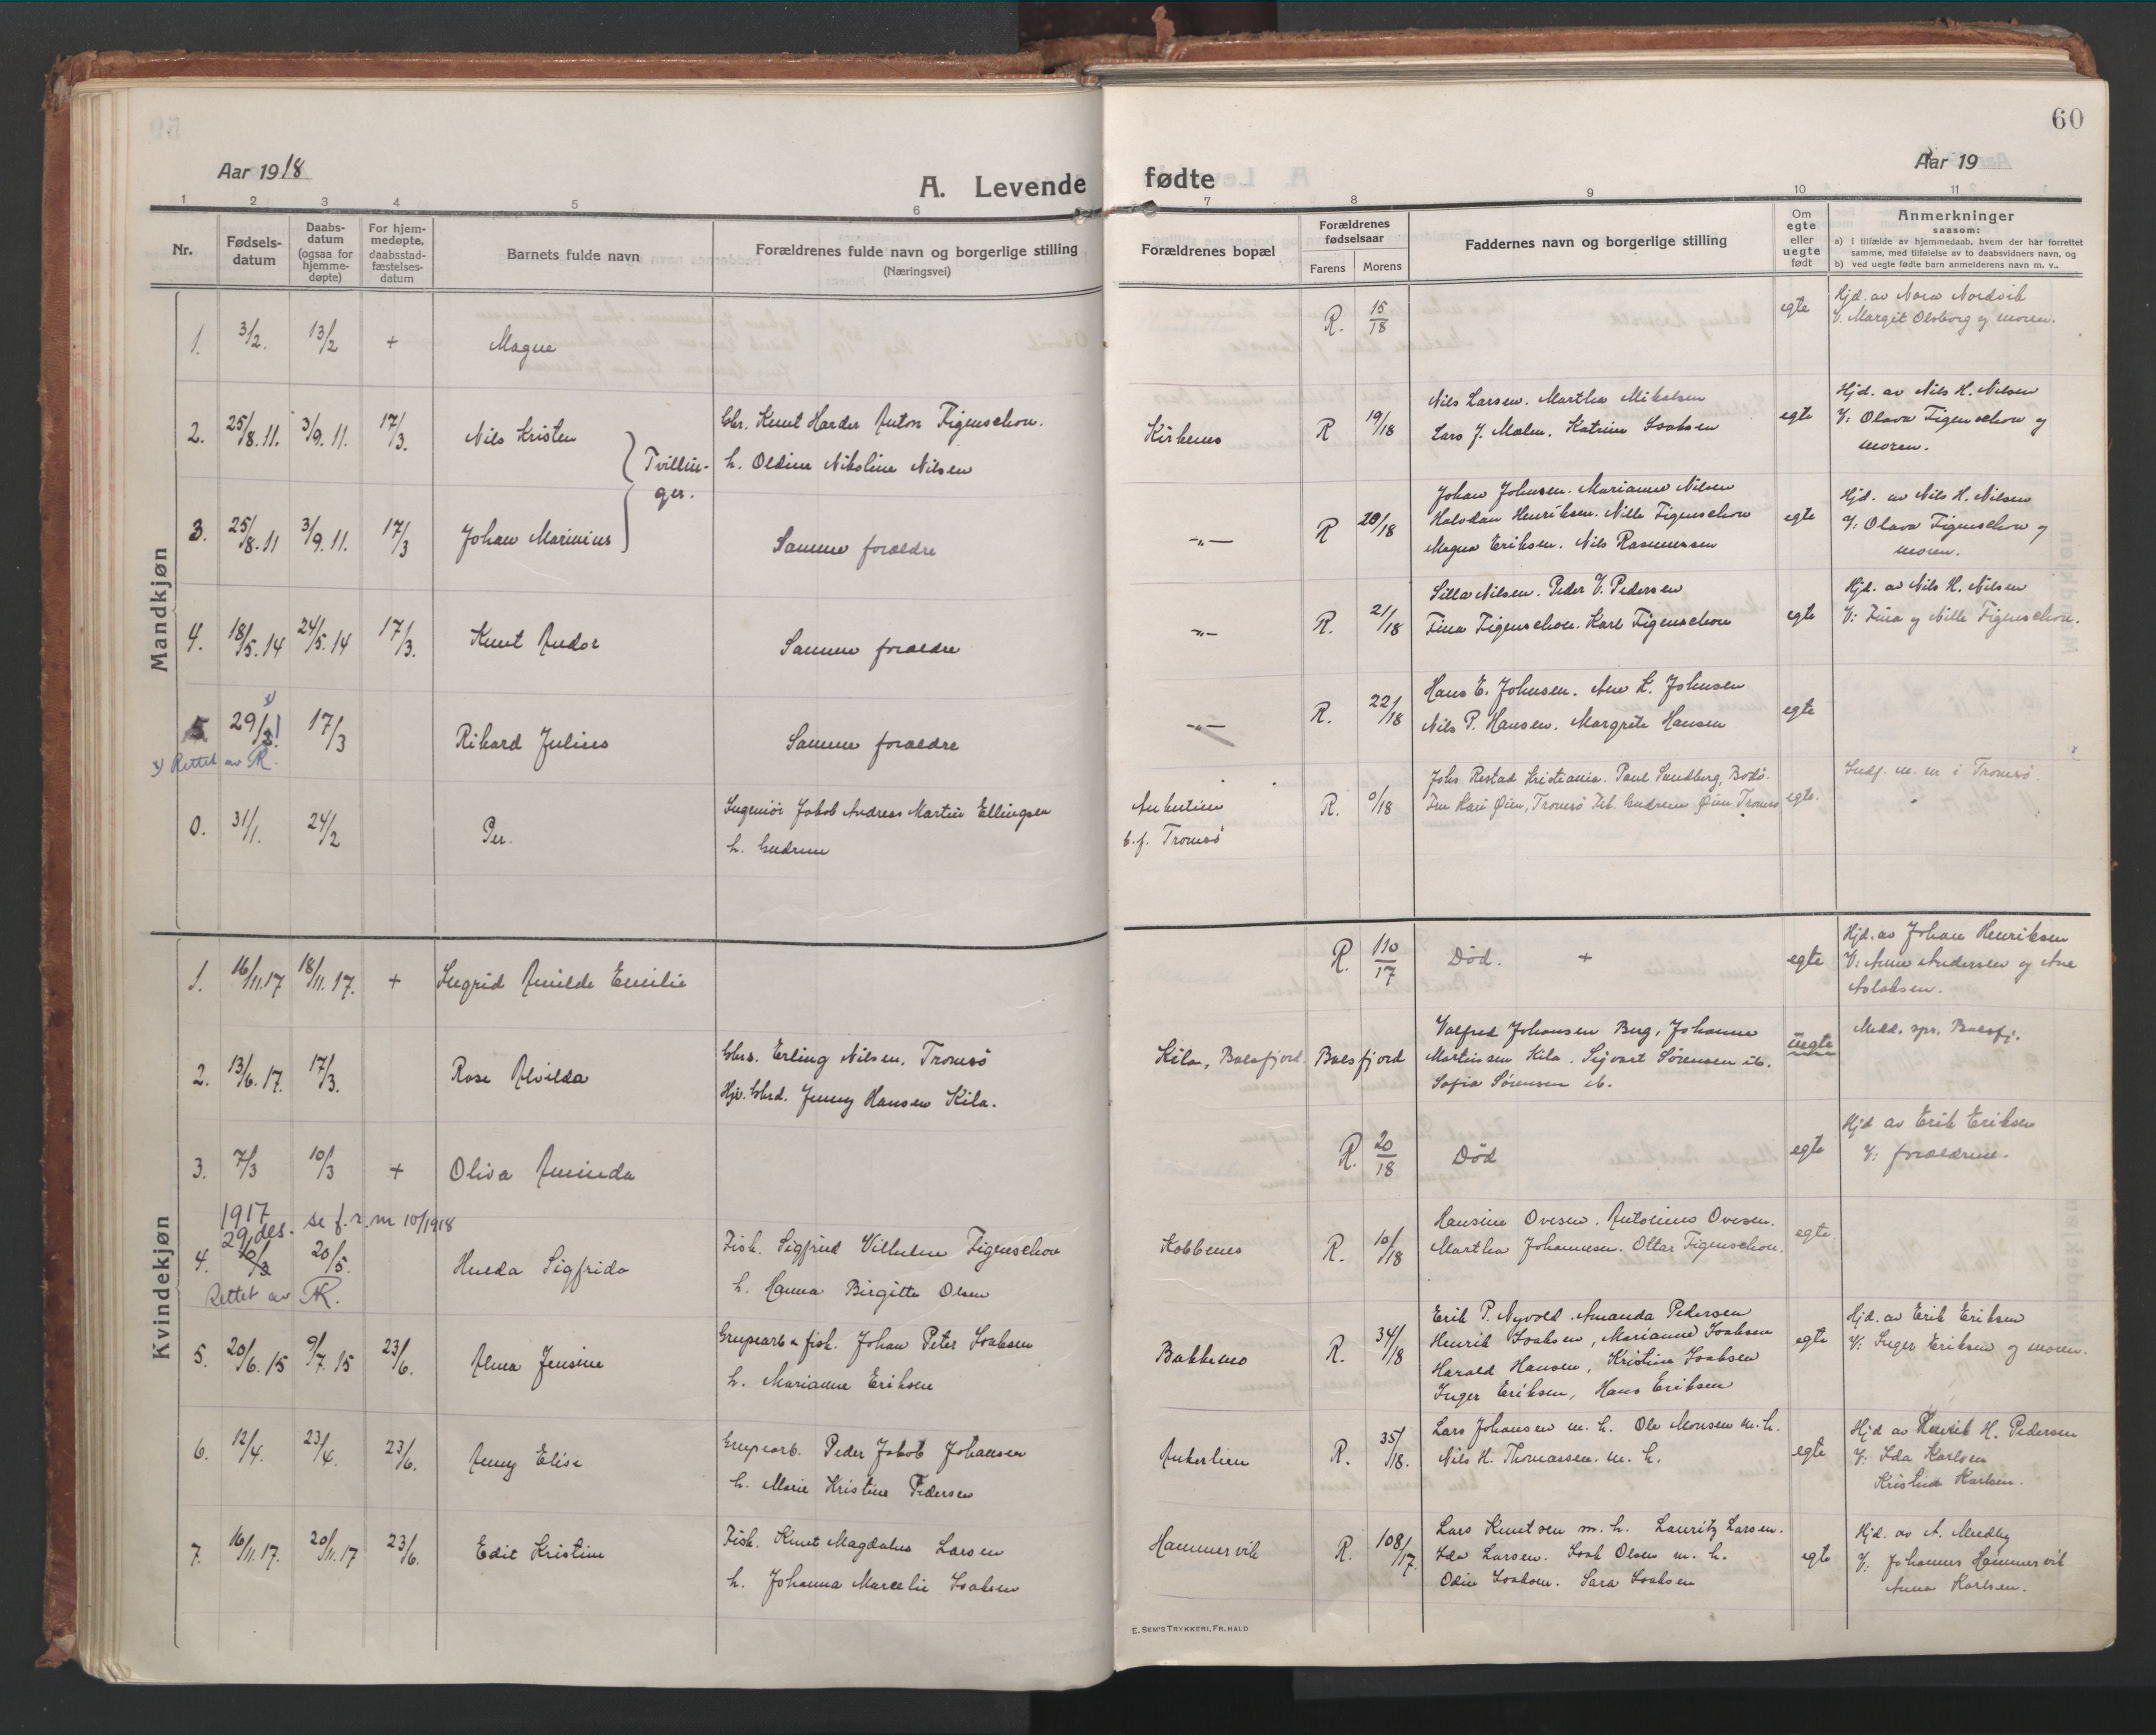 60
Aar 1918
Aar 19
A. Levende fødte
1 2 3 4 5 6 7 8 9 10 11
Nr.
Fødsels-
datum
Daabs-
datum
(ogsaa for
hjemme-
døpte)
For hjem-
medøpte,
daabsstad-
fæstelses-
datum
Barnets fulde navn
Forældrenes fulde navn og borgerlige stilling
(Næringsvei)
Forældrenes bopæl
Forældrenes
fødselsaar
Farens Morens
Faddernes navn og borgerlige stilling
Om
egte
eller
uegte
født
Anmerkninger
saasom:
a) i tilfælde av hjemmedaab, hvem der har forrettet
samme, med tilføielse av to daabsvidners navn, og
b) ved uegte fødte barn anmelderens navn m. v..
Mandkjøn
1. 3/2. 13/2 + Magne R. 15/18 egte
Hjd. av Nora Nordvik
V. Margit Olsborg og moren.
2. 25/8.11. 3/9.11. 17/3. Nils Kristen
Tvillin-
ger.
Knut Harder Anton Figenschou.
h. Oldine Nikoline Nilsen
Kirkenes R 19/18
Nils Larsen. Martha Mikalsen
Lars J. Malm. Katrine Isaksen
egte
Hjd. av Nils H. Nilsen
V: Olava Figenschou og
moren.
3. 25/8.11 3/9.11. 17/3 Johan Marinius
Samme forældre
-"- R 20/18
Johan Johnsen. Marianne Nilsen
Halvdan Henriksen. Nille Figenschou
Magna Eriksen. Nils Rasmussen
egte
Hjd. av Nils H. Nilsen
V: Olava Figenschou og
moren.
4. 18/5.14 24/5.14 17/3. Knut Andor
Samme forældre
-"- R. 21/18
Silla Nilsen. Peder V. Pedersen
Fina Figenschou. Karl Figenschou
egte
Hjd. av Nils H. Nilsen
V: Fina og Nille Figenschou.
5 29/3! x) 17/3 Rikard Julius
x) Rettet av
Samme forældre
-"- R. 22/18
Hans E. Johnsen. Ane K. Johnsen
Nils P. Hansen. Margrete Hansen
egte
0. 31/1. 24/2 Per.
Ingeniør Jakob Andreas Martin Ellingsen
h. Gudrun
b.f. Tromsø
R. 0/18
Johs Restad Kristiania. Paul Sandberg, Bodø.
Fru Kari Øien, Tromsø Gudrun Øien Tromsø
egte.
m. m i Tromsø.
Kvindekjøn
1. 16/11.17 18/11.17. + Ingrid Amilde Emilie
R. 110/17 Død. + egte
Hjd. av Johan Henriksen
V: Anne Andersen og Ane
Aslaksen.
2. 13/6.17. 17/3. Rose Alvilda
Erling Nilsen, Tromsø
Jenny Hansen Kila.
Kila, Balsfjord. Balsfjord
Valfred Johansen Berg, Johanne
Martinsen Kila. Sigvart Sørensen ib.
Sofia Sørensen ib.
uegte
Medd. spr. Balsfj.
3. 7/3 10/3 + Oliva Aminda
R. 20/18 Død egte
Hjd av Erik Eriksen
V: forældrene.
1917
29/des. se f. r. nr 10/1918
4. 20/5. Hulda Sigfrida
Rettet av
Fisk. Sigfrid Vilhelm Figenschou
h. Hanna Birgitte Olsen
Kobbenes R. 10/18
Hansine Ovesen. Antonius Ovesen.
Martha Johannesen. Ottar Figenschou.
egte
5. 20/6.15 9/7.15 23/6. Alma Jensine
Grupearb & fisk. Johan Peter Isaksen
h. Marianne Eriksen
Bakkenes R. 34/18
Erik P. Nyvold. Amanda Pedersen
Henrik Isaksen, Marianne Isaksen
Harald Hansen, Kristine Isaksen
Inger Eriksen, Hans Eriksen
egte
Hjd. av Erik Eriksen
V: Inger Eriksen og moren.
6. 12/4. 23/4. 23/6. Anny Elise
Grupearb. Peder Jakob Johansen
h. Marie Kristine Pedersen
Ankerlien R. 35/18.
Lars Johansen m. h. Ole Monsen m. h.
Nils H. Thomassen. m. h.
egte
Hjd av Henrik H. Pedersen
V: Ida Karlsen
Kristine Karlsen.
7. 16/11.17. 20/11.17 23/6. Edit Kristine
Fisk. Knut Magdalus Larsen
h. Johanna Marselie Isaksen
Hammervik R. 108/17.
Lars Knutsen m. h. Lauritz Larsen.
Ida Larsen. Isak Olsen m. h.
Odin Isaksen. Sara Isaksen
egte
Hjd. av A. Medby
V: Johannes Hammervik
Anna Karlsen.
E. SEM'S TRYKKERI, FR.HALD